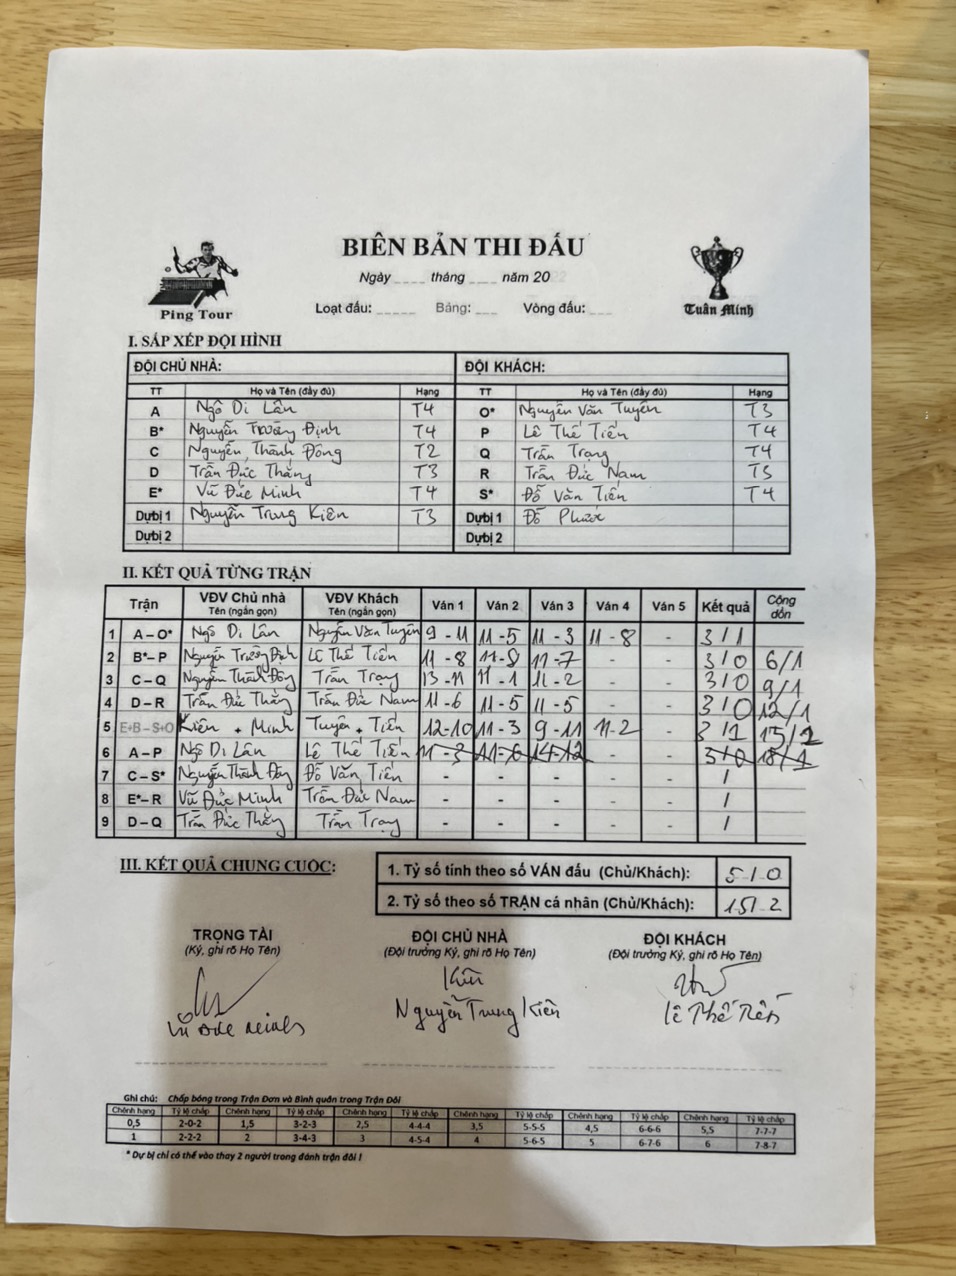 BIÊN BẢN THI ĐẤU
Ngày ____ tháng ____ năm 20
Loạt đấu: _____ Bảng: ___ Vòng đấu: ___
Ping Tour
Tuấn Minh
I. SẮP XẾP ĐỘI HÌNH
ĐỘI CHỦ NHÀ: ĐỘI KHÁCH:
TT Họ và Tên (đầy đủ) Hạng TT Họ và Tên (đầy đủ) Hạng
A Ngô Di Lân T4 O* Nguyễn Văn Tuyên T3
B* Nguyễn Trường Định T4 P Lê Thế Tiến T4
C Nguyễn Thành Đông T2 Q Trần Trọng T4
D Trần Đức Thắng T3 R Trần Đức Nam T5
E* Vũ Đức Minh T4 S* Đỗ Văn Tiến T4
Dự bị 1 Nguyễn Trung Kiên T3 Dự bị 1 Đỗ Phước
Dự bị 2 Dự bị 2
II. KẾT QUẢ TỪNG TRẬN
Trận VĐV Chủ nhà Tên (ngắn gọn) VĐV Khách Tên (ngắn gọn) Ván 1 Ván 2 Ván 3 Ván 4 Ván 5 Kết quả Cộng dồn
1 A – O* Ngô Di Lân Nguyễn Văn Tuyên 9 - 11 11 - 5 11 - 3 11 - 8 - 3 / 1
2 B* – P Nguyễn Trường Định Lê Thế Tiến 11 - 8 11 - 8 11 - 7 - - 3 / 0 6/1
3 C – Q Nguyễn Thành Đông Trần Trọng 13 - 11 11 - 1 11 - 2 - - 3 / 0 9/1
4 D – R Trần Đức Thắng Trần Đức Nam 11 - 6 11 - 5 11 - 5 - - 3 / 0 12/1
5 E+B – S+O Kiên + Minh Tuyên + Tiến 12-10 11 - 3 9 - 11 11 - 2 - 3 / 1 15/2
6 A – P Ngô Di Lân Lê Thế Tiến 11 - 3 11 - 6 14 - 12 - - 3 / 0 18/1
7 C – S* Nguyễn Thành Đông Đỗ Văn Tiến - - - - - /
8 E* – R Vũ Đức Minh Trần Đức Nam - - - - - /
9 D – Q Trần Đức Thắng Trần Trọng - - - - - /
III. KẾT QUẢ CHUNG CUỘC:
1. Tỷ số tính theo số VÁN đấu (Chủ/Khách): 5 / 0
2. Tỷ số theo số TRẬN cá nhân (Chủ/Khách): 15/ 2
TRỌNG TÀI ĐỘI CHỦ NHÀ ĐỘI KHÁCH
(Ký, ghi rõ Họ Tên) (Đội trưởng Ký, ghi rõ Họ Tên) (Đội trưởng Ký, ghi rõ Họ Tên)
Kiên
Nguyễn Trung Kiên
Lê Thế Tiến
Ghi chú: Chấp bóng trong Trận Đơn và Bình quân trong Trận Đôi
Chênh hạng Tỷ lệ chấp Chênh hạng Tỷ lệ chấp Chênh hạng Tỷ lệ chấp Chênh hạng Tỷ lệ chấp Chênh hạng Tỷ lệ chấp Chênh hạng Tỷ lệ chấp
0,5 2-0-2 1,5 3-2-3 2,5 4-4-4 3,5 5-5-5 4,5 6-6-6 5,5 7-7-7
1 2-2-2 2 3-4-3 3 4-5-4 4 5-6-5 5 6-7-6 6 7-8-7
* Dự bị chỉ có thể vào thay 2 người trong đánh trận đôi !